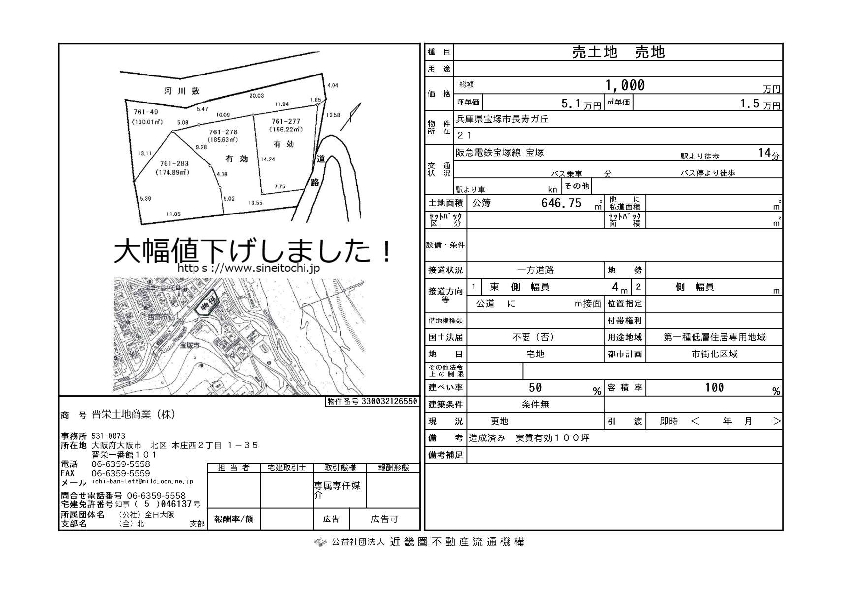 河川敷
4.04
20.03
761-49
(130.01㎡)
5.47
11.94
1.65
5.08
10.09
761-277
(156.22㎡)
12.58
761-278
(185.63㎡)
有効
9.28
有効
道
13.11
761-283
(174.89㎡)
14.24
4.38
路
7.75
5.39
5.02
13.55
11.05
大幅値下げしました！
https://www.sineitochi.jp
物件番号 330032126550
商号 晋栄土地商業（株）
事務所 531-0073
所在地 大阪府大阪市 北区 本庄西2丁目 1－35
晋栄一番館101
電話 06-6359-5558
FAX 06-6359-5559
メール ichi-ban-1eft@mild.ocn.ne.jp
問合せ電話番号 06-6359-5558
宅建免許番号 知事（ 5 ）046137号
所属団体名 （公社）全日大阪
支部名 （全）北 支部
担当者 宅建取引士 取引態様 報酬形態
専属専任媒介
報酬率/額 広告 広告可
種目 売土地 売地
用途
価格 総額 1,000 万円
坪単価 5.1 万円 ㎡単価 1.5 万円
物件所在 兵庫県宝塚市長寿ガ丘
21
交通状況 阪急電鉄宝塚線 宝塚 駅より徒歩 14分
バス乗車 分 バス停より徒歩
駅より車 km その他
土地面積 公簿 646.75 ㎡ 他に私道面積 ㎡
セットバック区分 セットバック面積 ㎡
設備・条件
接道状況 一方道路 地勢
接道方向等 1 東 側 幅員 4 m 2 側 幅員 m
公道 に m接面 位置指定
借地権種類 付帯権利
国土法届 不要（否） 用途地域 第一種低層住居専用地域
地目 宅地 都市計画 市街化区域
その他法令上の制限
建ぺい率 50 % 容積率 100 %
建築条件 条件無
現況 更地 引渡 即時 ＜ 年 月 ＞
備考 造成済み 実質有効100坪
備考補足
公益社団法人 近畿圏不動産流通機構